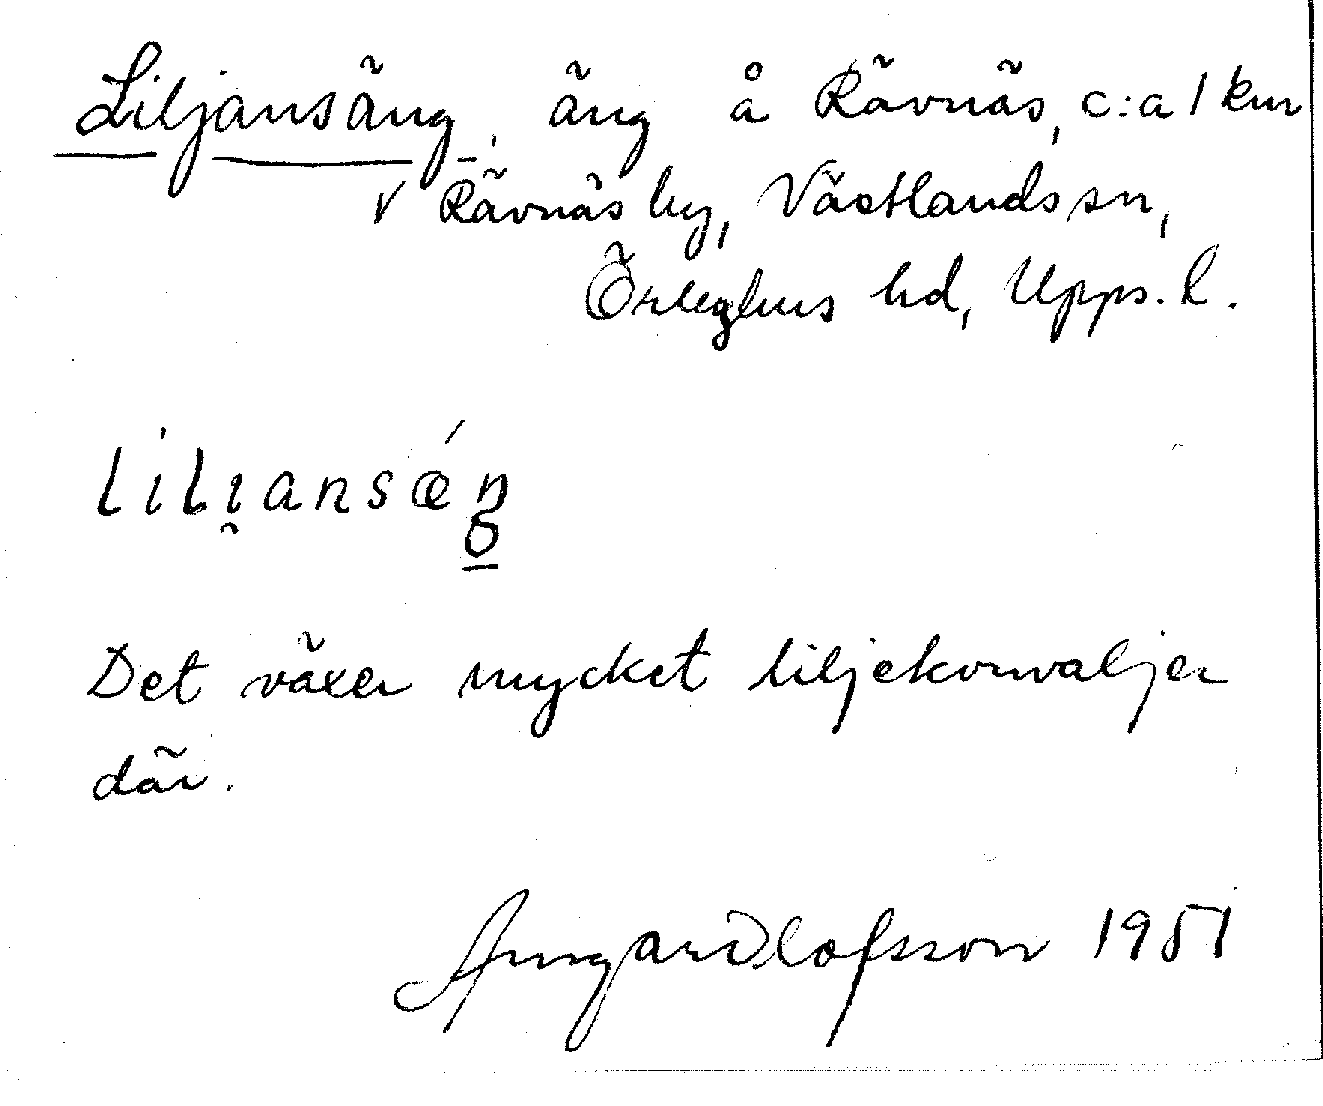 Liljansäng, äng å Rävnäs, c:a 1 km
V Rävnäs by, Västlands sn,
Örbyhus hd, Upps. l.
lilı̯ansǽŋ
Det växer mycket liljekonvaljer
där.
Olofsson 1951